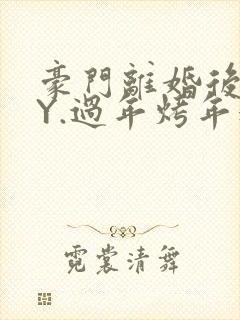 豪門離婚後
Y.過年烤年
霓裳清舞